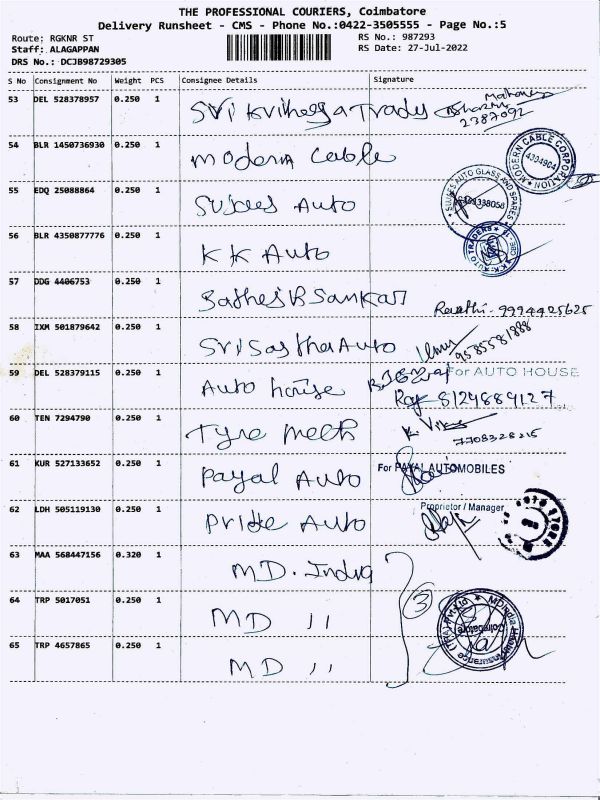 THE PROFESSIONAL COURIERS, Coimbatore
Delivery Runsheet - CMS - Phone No.:0422-3505555 - Page No.:5
Route: RGKNR ST
RS No.: 987293
Staff: ALAGAPPAN
RS Date: 27-Jul-2022
DRS No.: DCJB98729305
S No Consignment No Weight PCS Consignee Details Signature
53 DEL 528378957 0.250 1 Sri Trads
2387092
54 BLR 1450736930 0.250 1 Modern Cable MODERN CABLE CORPORATION 4334904
55 EDQ 25088864 0.250 1 Auto AUTO GLASS AND SPARES
56 BLR 4350877776 0.250 1 KK Auto K.K. AUTO TRADERS
57 DDG 4406753 0.250 1 Sathes B Sankar Revathi - 9994425625
58 IXM 501879642 0.250 1 Sri Sastha Auto 9585581888
59 DEL 528379115 0.250 1 Auto house For AUTO HOUSE
Raj 8124884127
60 TEN 7294790 0.250 1 Tyre Meth K. 7708328215
61 KUR 527133652 0.250 1 Payal Auto For PAYAL AUTOMOBILES
62 LDH 505119130 0.250 1 Pride Auto Proprietor / Manager
63 MAA 568447156 0.320 1 MD. India
64 TRP 5017051 0.250 1 MD 11 3 MDIndia Health Insurance (TPA) Pvt. Ltd. Coimbatore
65 TRP 4657865 0.250 1 MD 11